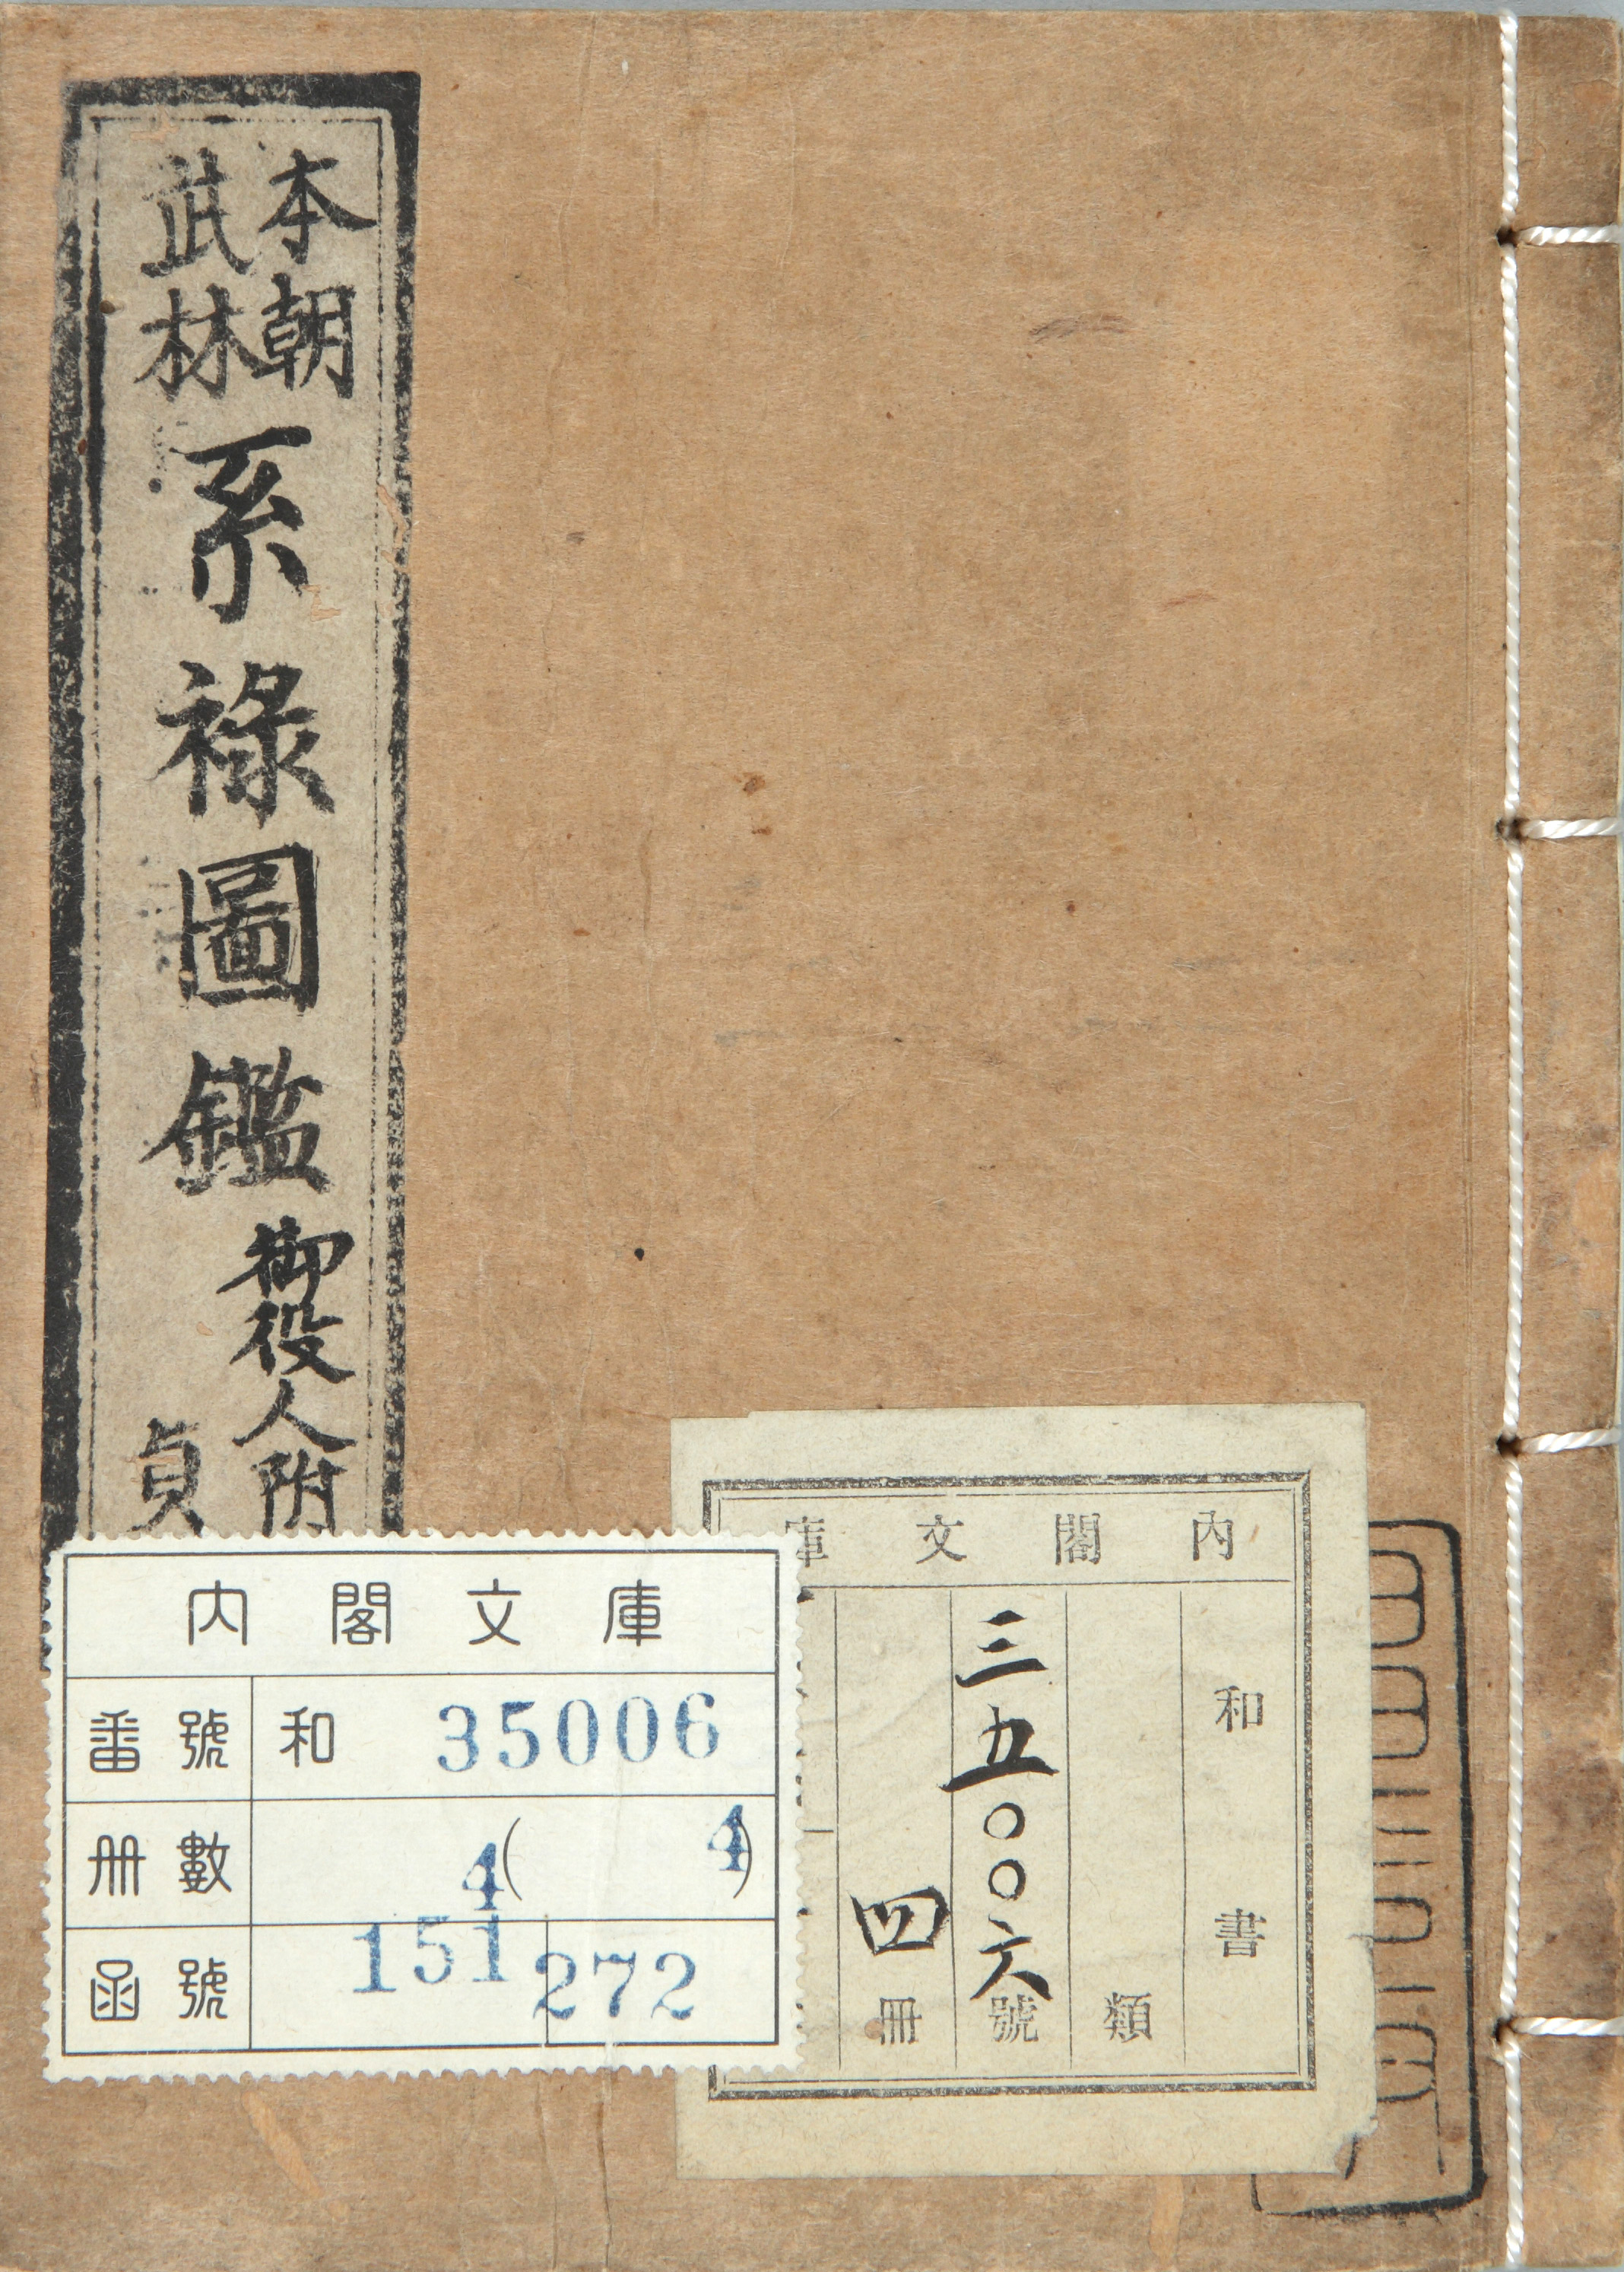 本朝
武林
系祿圖鑑
御役人附
貞
內閣文庫
和書
類
三五〇〇六號
四冊
内閣文庫
番號 和 35006
冊數 4(4)
函號 151 272